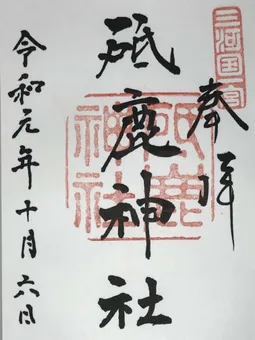 三河国一宮
奉拝
砥鹿神社
令和元年十月六日